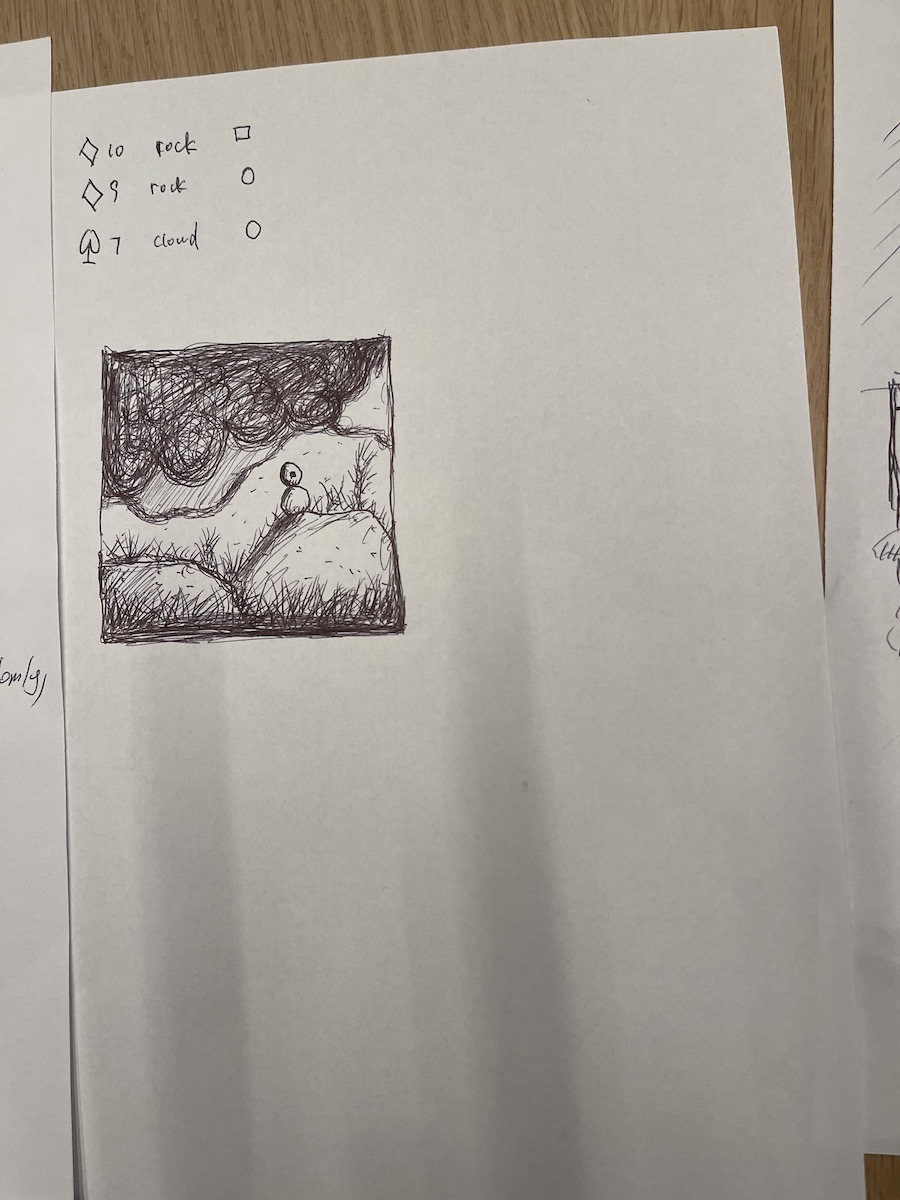 ◇10 rock □
◇9 rock ○
♤7 cloud ○